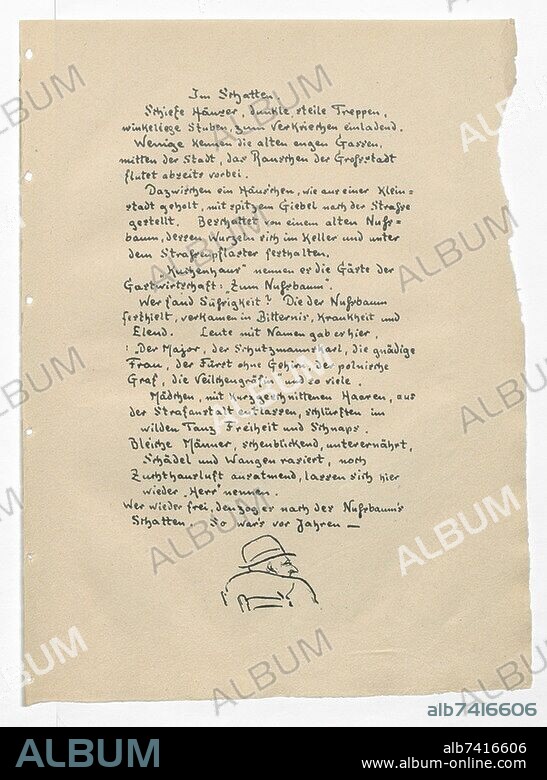 Im Schatten.
Schiefe Häuser, dunkle steile Treppen,
winkelige Stuben, zum Verkriechen einladend.
Wenige kennen die alten engen Gassen,
mitten der Stadt, das Rauschen der Grofsstadt
flutet abseits vorbei.
Dazwischen ein Häuschen, wie aus einer Klein=
stadt geholt, mit spitzem Giebel nach der Strafse
gestellt. Beschattet von einem alten Nufs=
baum, dessen Wurzeln sich im Keller und unter
dem Strafsenpflaster festhalten.
"Kuchenhaus" nennen es die Gäste der
Gastwirtschaft: "Zum Nufsbaum".
Wer fand Süfsigkeit? Die der Nufsbaum
festhielt, verkamen in Bitternis, Krankheit und
Elend. Leute mit Namen gab es hier,
: "Der Major, der Schutzmannskarl, die gnädige
Frau, der Fürst ohne Gehirn, der polnische
Graf, die Veilchengräfin" und so viele.
Mädchen, mit kurzgeschnittenen Haaren, aus
der Strafanstalt entlassen, schlürften im
wilden Tanz Freiheit und Schnaps.
Bleiche Männer, scheublickend, unterernährt,
Schädel und Wangen rasiert, noch
Zuchthausluft ausatmend, lassen sich hier
wieder "Herr" nennen.
Wer wieder frei, den zog es nach des Nufsbaum's
Schatten. So war's vor Jahren —
ALBUM
alb7416606
ALBUM
alb7416606
www.album-online.com